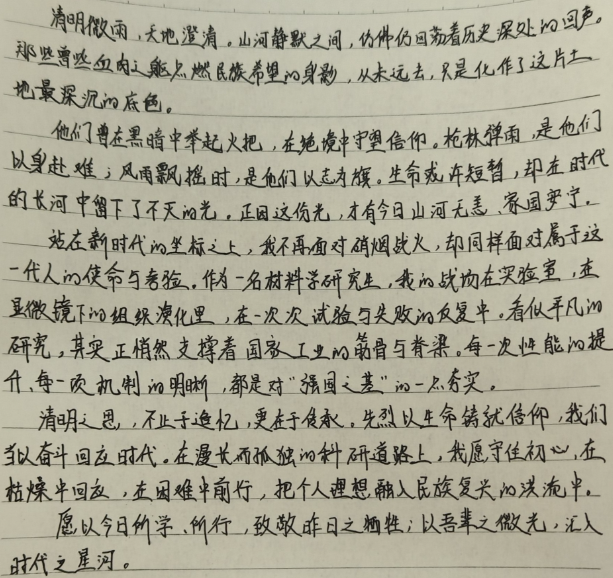 清明微雨,天地澄清。山河静默之间,仿佛仍回荡着历史深处的回声。
那些曾以血肉之躯点燃民族希望的身影,从未远去,只是化作了这片土
地最深沉的底色。
他们曾在黑暗中举起火把,在绝境中守望信仰。枪林弹雨,是他们
以身赴难;风雨飘摇时,是他们以志为旗。生命或许短暂,却在时代
的长河中留下了不灭的光。正因这份光,才有今日山河无恙、家国安宁。
站在新时代的坐标之上,我不再面对硝烟战火,却同样面对属于这
一代人的使命与考验。作为一名材料学研究生,我的战场在实验室,在
显微镜下的组织演化里,在一次次试验与失败的反复中。看似平凡的
研究,其实正悄然支撑着国家工业的筋骨与脊梁。每一次性能的提
升、每一项机制的明晰,都是对“强国之基”的一点夯实。
清明之思,不止于追忆,更在于传承。先烈以生命铸就信仰,我们
当以奋斗回应时代。在漫长而孤独的科研道路上,我愿守住初心,在
枯燥中回应,在困难中前行,把个人理想融入民族复兴的洪流中。
愿以今日所学、所行,致敬昨日之牺牲;以吾辈之微光,汇入
时代之星河。